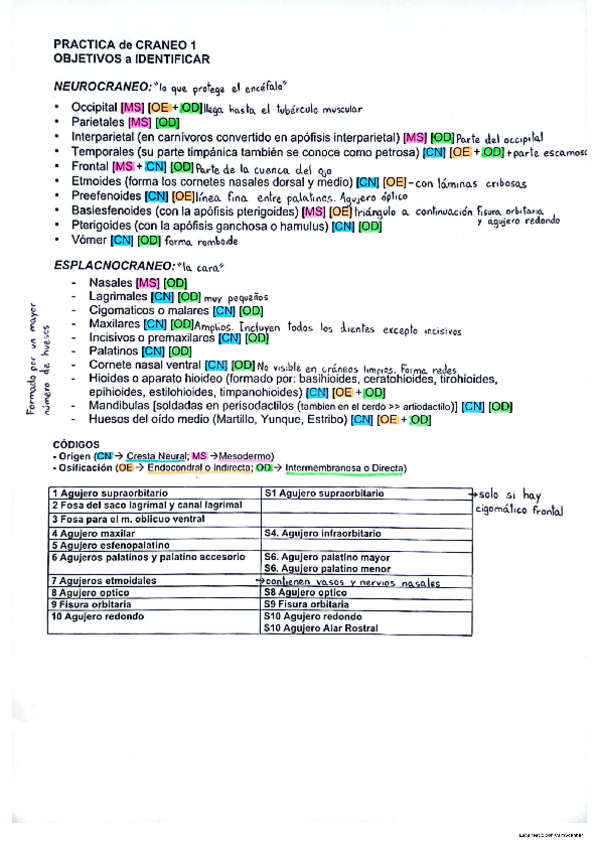 PRACTICA de CRANEO 1
OBJETIVOS a IDENTIFICAR
NEUROCRANEO: "lo que protege el encéfalo"
• Occipital [MS] [OE + OD] llega hasta el tubérculo muscular
• Parietales [MS] [OD]
• Interparietal (en carnivoros convertido en apófisis interparietal) [MS] [OD] Parte del occipital
• Temporales (su parte timpánica también se conoce como petrosa) [CN] [OE + OD] + parte escamosa
• Frontal [MS + CN] [OD] Parte de la cuenca del ojo
• Etmoides (forma los cornetes nasales dorsal y medio) [CN] [OE] - con láminas cribosas
• Preefenoides [CN] [OE] línea fina entre palatinos. Agujero óptico
• Basiesfenoides (con la apófisis pterigoides) [MS] [OE] triángulo a continuación fisura orbitaria
y agujero redondo
• Pterigoides (con la apófisis ganchosa o hamulus) [CN] [OD]
• Vómer [CN] [OD] forma romboide
ESPLACNOCRANEO: "la cara"
Formado por un mayor
número de huesos
- Nasales [MS] [OD]
- Lagrimales [CN] [OD] muy pequeños
- Cigomaticos o malares [CN] [OD]
- Maxilares [CN] [OD] Amplios. Incluyen todos los dientes excepto incisivos
- Incisivos o premaxilares [CN] [OD]
- Palatinos [CN] [OD]
- Cornete nasal ventral [CN] [OD] No visible en cráneos limpios. Forma redes
- Hioides o aparato hioideo (formado por: basihioides, ceratohioides, tirohioides,
epihioides, estilohioides, timpanohioides) [CN] [OE + OD]
- Mandibulas [soldadas en perisodactilos (tambien en el cerdo >> artiodactilo)] [CN] [OD]
- Huesos del oído medio (Martillo, Yunque, Estribo) [CN] [OE + OD]
CÓDIGOS
- Origen (CN → Cresta Neural; MS → Mesodermo)
- Osificación (OE → Endocondral o Indirecta; OD → Intermembranosa o Directa)
1 Agujero supraorbitario S1 Agujero supraorbitario → solo si hay
cigomático frontal
2 Fosa del saco lagrimal y canal lagrimal
3 Fosa para el m. oblicuo ventral
4 Agujero maxilar S4. Agujero infraorbitario
5 Agujero esfenopalatino
6 Agujeros palatinos y palatino accesorio S6. Agujero palatino mayor
S6. Agujero palatino menor
7 Agujeros etmoidales → contienen vasos y nervios nasales
8 Agujero optico S8 Agujero optico
9 Fisura orbitaria S9 Fisura orbitaria
10 Agujero redondo S10 Agujero redondo
S10 Agujero Alar Rostral